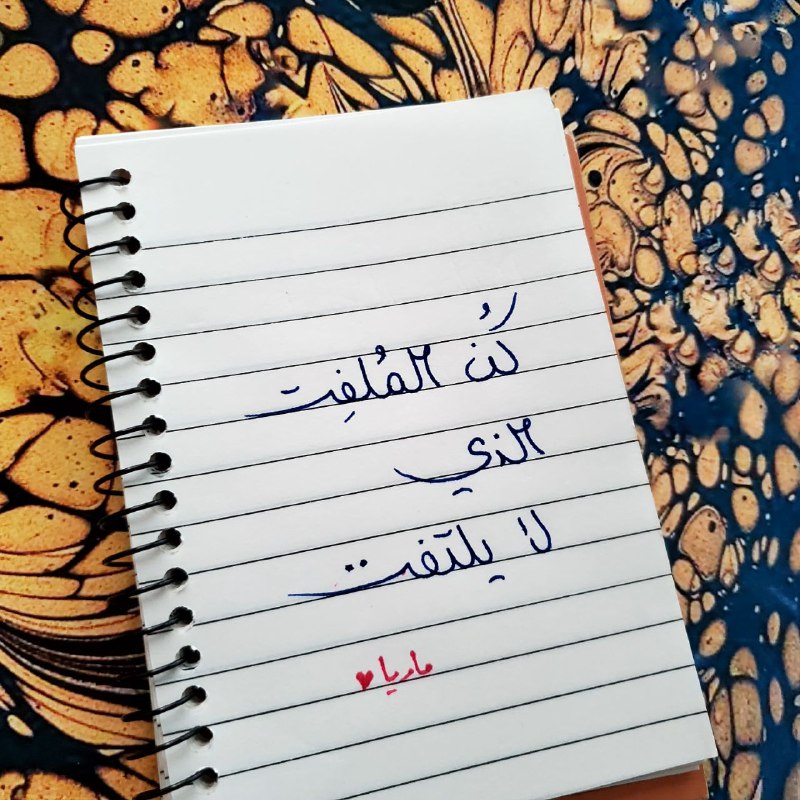 كُن المُلفِت
الذي
لا يلتفت
ماريا♥